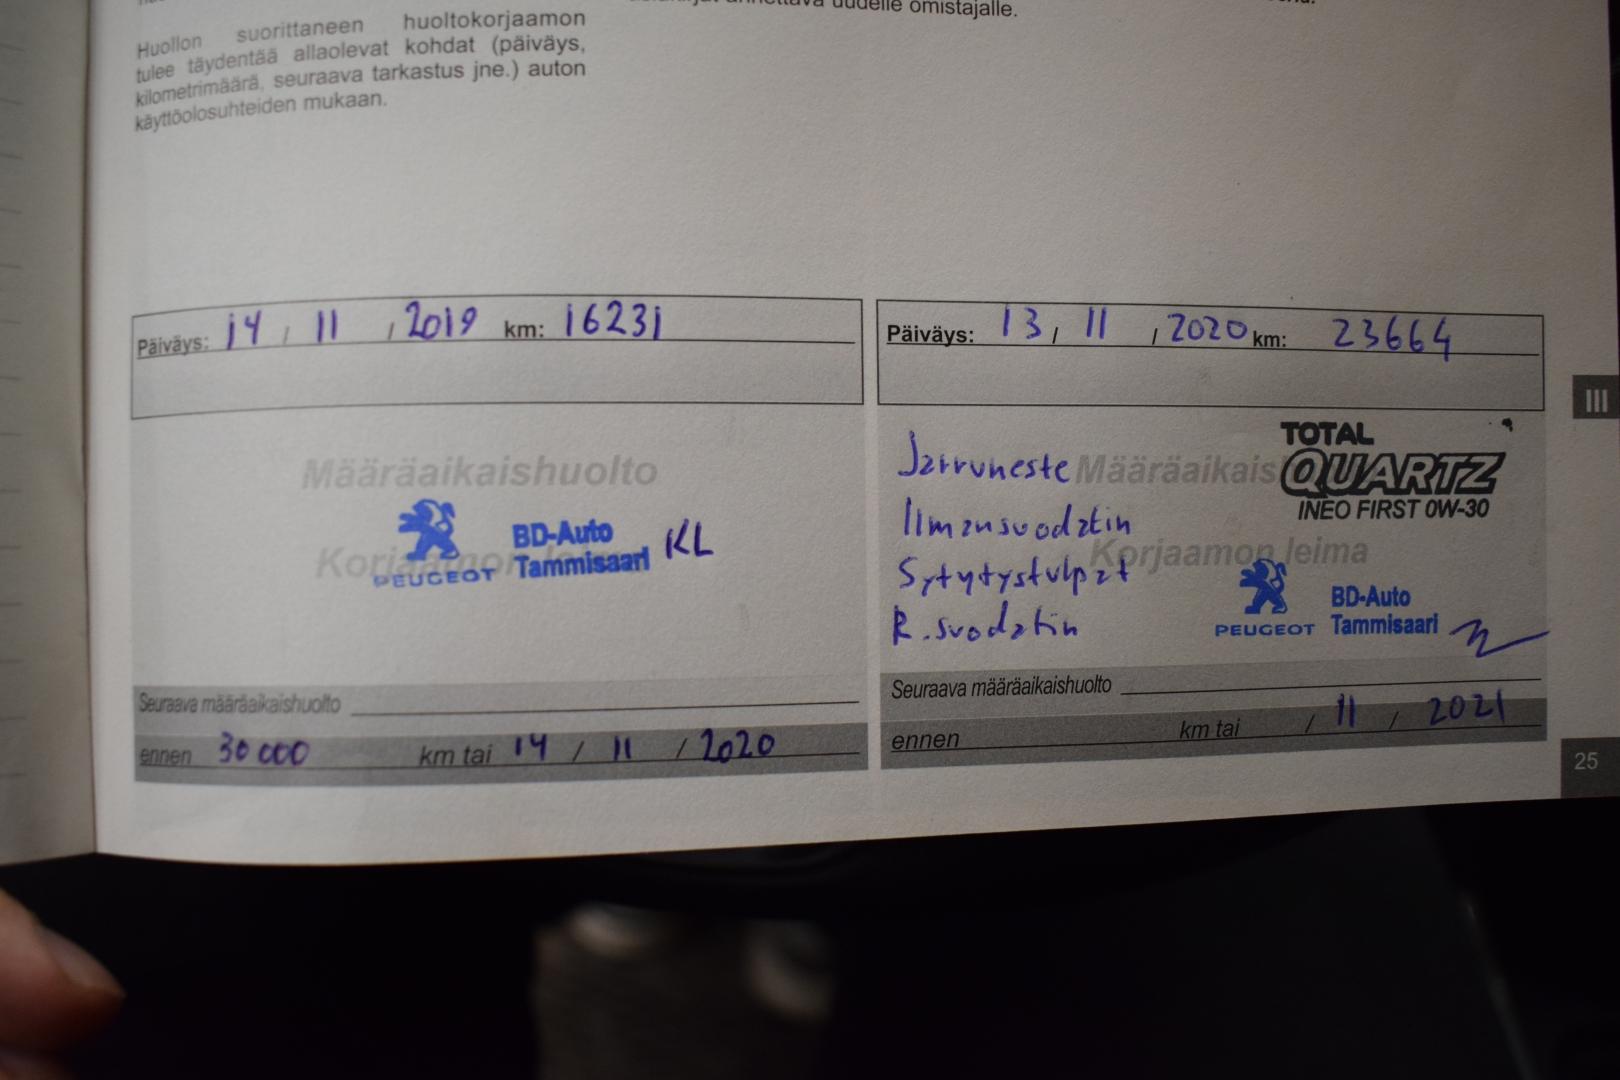 uudelle omistajalle.
Huollon suorittaneen huoltokorjaamon
tulee täydentää allaolevat kohdat (päiväys,
kilometrimäärä, seuraava tarkastus jne.) auton
käyttöolosuhteiden mukaan.
Päiväys: 14 / 11 / 2019 km: 16231
Päiväys: 13 / 11 / 2020 km: 23664
III
Määräaikaishuolto
Korjaamon leima
PEUGEOT
BD-Auto
Tammisaari
KL
Seuraava määräaikaishuolto
ennen 30 000 km tai 14 / 11 / 2020
Jarruneste
Ilmansuodatin
Sytytystulpat
R.suodatin
Määräaikais
TOTAL
QUARTZ
INEO FIRST 0W-30
Korjaamon leima
PEUGEOT
BD-Auto
Tammisaari
Seuraava määräaikaishuolto
ennen km tai / 11 / 2021
25